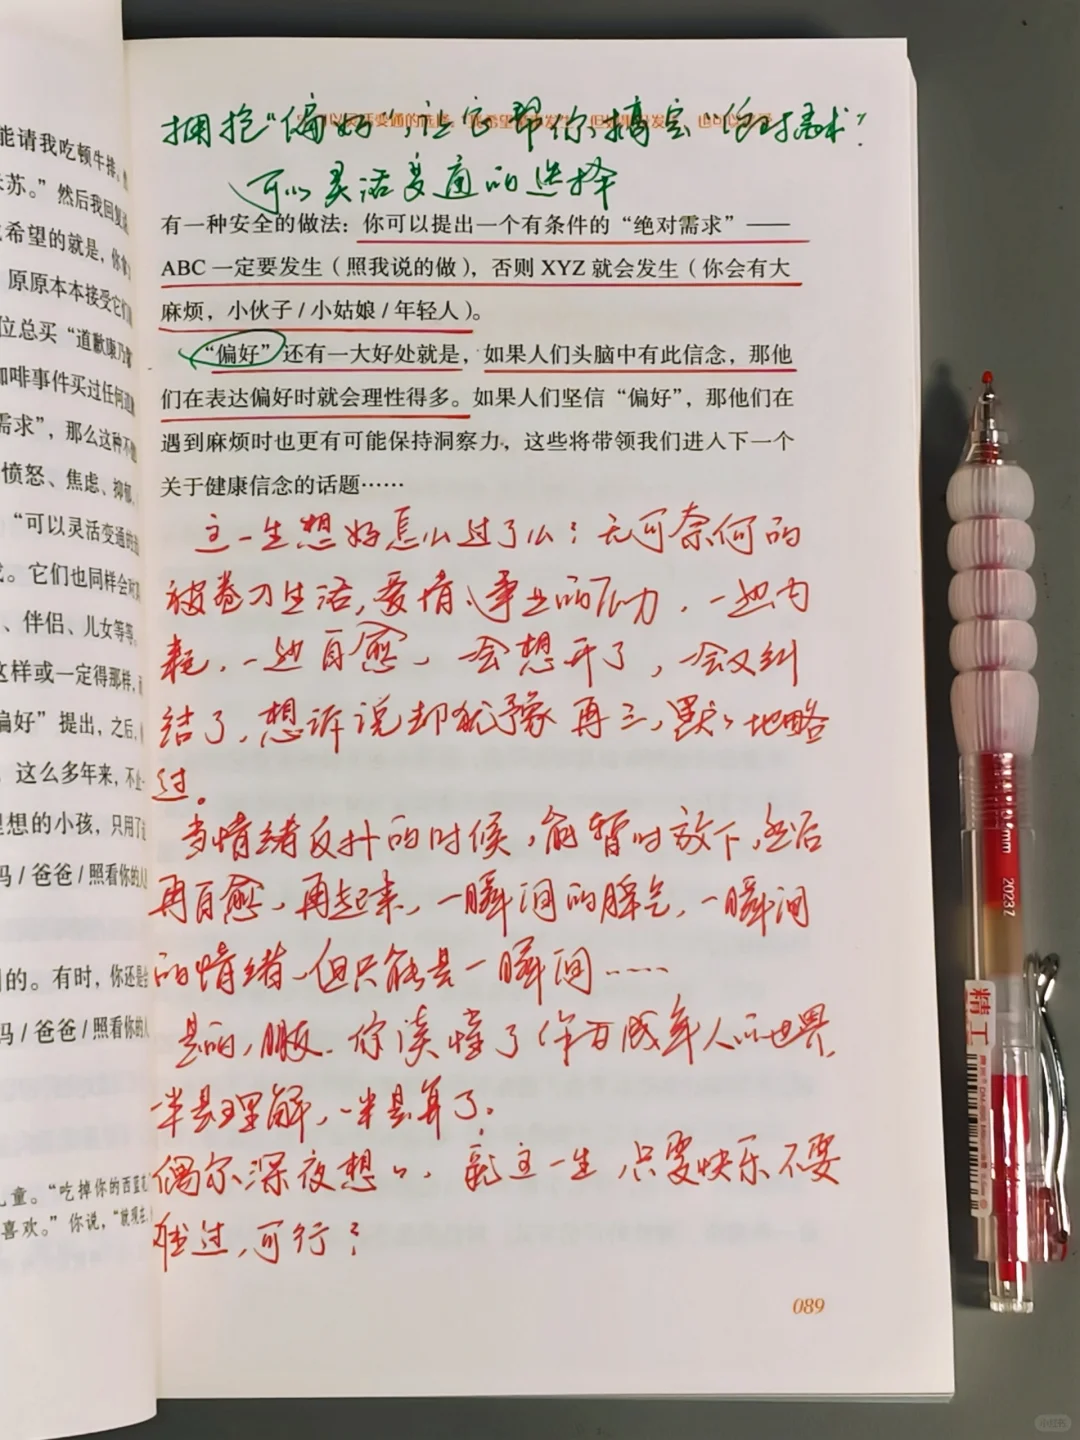 拥抱“偏好”，让它帮你搞定“绝对需求”：
可以灵活变通的选择
有一种安全的做法：你可以提出一个有条件的“绝对需求”——
ABC 一定要发生（照我说的做），否则 XYZ 就会发生（你会有大
麻烦，小伙子 / 小姑娘 / 年轻人）。
“偏好”还有一大好处就是，如果人们头脑中有此信念，那他
们在表达偏好时就会理性得多。如果人们坚信“偏好”，那他们在
遇到麻烦时也更有可能保持洞察力，这些将带领我们进入下一个
关于健康信念的话题……
这一生想好怎么过了么？无可奈何的
被卷入生活，爱情、事业的压力，一边内
耗，一边自愈，一会想开了，一会又纠
结了，想诉说却犹豫再三，默默地略
过。
当情绪反扑的时候，前暂时放下，然后
再自愈，再起来，一瞬间的脾气，一瞬间
的情绪，但只能是一瞬间……
是的，朋友，你读懂了作为成年人的世界，
一半是理解，一半是算了。
偶尔深夜想想，这一生只要快乐不要
难过，可行？
089
能请我吃顿牛排，
苏。”然后我回复说
希望的就是，你拿
原原本本接受它们
位总买“道歉康乃馨
咖啡事件买过任何道歉
需求”，那么这种不
愤怒、焦虑、抑郁、
“可以灵活变通的选
。它们也同样会对其
、伴侣、儿女等等。
这样或一定得那样，而
偏好”提出，之后，
这么多年来，不止一
理想的小孩，只用了这
妈 / 爸爸 / 照看你的人
的。有时，你还是会
妈 / 爸爸 / 照看你的人
儿童。“吃掉你的西蓝花
喜欢。”你说，“就现在，
mm
2023.7
精工
小红书